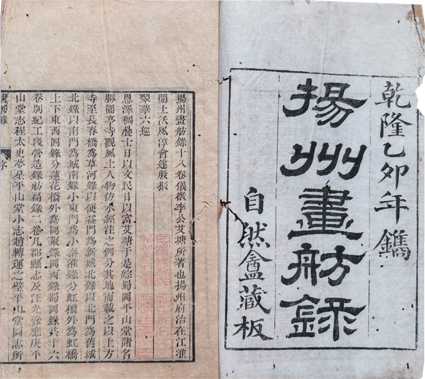 乾隆乙卯年鐫
揚州畫舫錄
自然盦藏板
揚州畫舫錄十八卷儀徵李公艾塘所著也揚州府治在江淮
間土沃風淳會運殷振
翠華六巡
恩澤稠疊士日以文民日以富艾塘于是綜蜀岡平山堂諸名
勝園亭寺觀風土人物仿水經注之例分其地而載之以上方
寺至長春橋為草河錄以便益門為新城北錄以北門為舊城
北錄以南門為城南錄小東門為小秦淮錄分虹橋外為虹橋
上下東西四錄分蓮花橋外為岡東錄岡西錄蜀岡錄共十六
卷別紀工段營造錄舫扁錄二卷凡郡縣志及汪光祿應庚平
山堂志程太史夢星平山堂小志趙轉運之璧平山堂圖志所